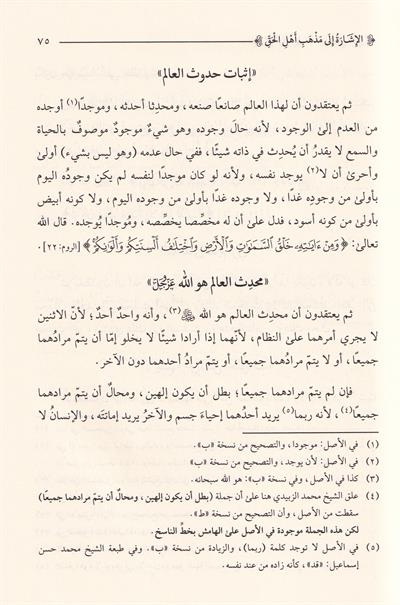 ﴿ الإِشَارَةُ إِلَى مَذْهَبِ أَهْلِ الْحَقِّ ﴾ ٧٥
«إثبات حدوث العالم»
ثم يعتقدون أن لهذا العالم صانعًا صنعه، ومحدِثا أحدثه، وموجدًا(١) أوجده
من العدم إلى الوجود، لأنه حالَ وجوده وهو شيءٌ موجودٌ موصوفٌ بالحياة
والسمع لا يقدرُ أن يُحدِث في ذاته شيئًا، ففي حال عدمه (وهو ليس بشيء) أولى
وأحرىٰ أن لا(٢) يوجد نفسه، ولأنه لو كان موجدًا لنفسه لم يكن وجودُه اليوم
بأولىٰ من وجودِه غدًا، ولا وجوده غدًا بأولىٰ من وجوده اليوم، ولا كونه أبيض
بأولىٰ من كونه أسود، فدل علىٰ أن له مخصِّصا يخصِّصه، ومُوجدًا يُوجده. قال الله
تعالىٰ: ﴿وَمِنْ ءَايَٰتِهِۦ خَلْقُ ٱلسَّمَٰوَٰتِ وَٱلْأَرْضِ وَٱخْتِلَٰفُ أَلْسِنَتِكُمْ وَأَلْوَٰنِكُمْ﴾ [الروم: ٢٢].
«محدِث العالم هو الله عَزَّوَجَلَّ»
ثم يعتقدون أن محدِث العالم هو الله (٣)، وأنه واحدٌ أحدٌ؛ لأنّ الاثنين
لا يجري أمرهما علىٰ النظام، لأنّهما إذا أرادا شيئًا لا يخلو إمّا أن يتمّ مرادُهما
جميعًا، أو لا يتمّ مرادُهما جميعًا، أو يتمّ مرادُ أحدهما دون الآخر.
فإن لم يتم مرادهما جميعًا؛ بطل أن يكون إلهين، ومحالٌ أن يتم مرادهما
جميعًا(٤)، لأنه ربما(٥) يريد أحدُهما إحياءَ جسم والآخرُ يريد إماتتَه، والإنسانُ لا
(١) في الأصل: موجودا، والتصحيح من نسخة «ب».
(٢) في الأصل: لأن يوجد، والتصحيح من نسخة «ب»
(٣) كذا في الأصل، وفي نسخة «ب»: هو الله سبحانه.
(٤) علق الشيخ محمد الزبيدي هنا على أن جملة (بطل أن يكون إلهين، ومحال أن يتم مرادهما جميعا)
سقطت من الأصل، وأن التصحيح من نسخة «ط».
لكن هذه الجملة موجودة في الأصل علىٰ الهامش بخطّ الناسخ.
(٥) في الأصل لا توجد كلمة (ربما)، والزيادة من نسخة «ب». وفي طبعة الشيخ محمد حسن
إسماعيل: «قد»، كأنه زاده من عند نفسه.